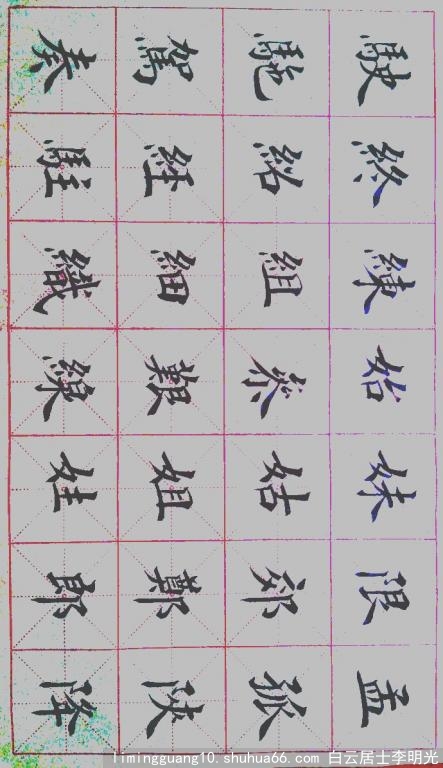 駛終練始妹限孟
馳紹組參姑孤
駕經細艱姐鄭陝
駐織線娃郎降
limingguang10.shuhua66.com 白云居士李明光